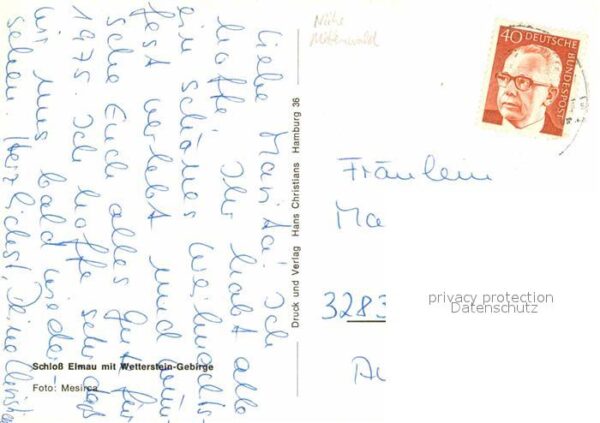 Liebe
hoffe, Ihr habt alle
ein schönes Weihnachts-
fest verlebt und wün-
sche Euch alles Gute für
1975. Ich hoffe sehr, daß
wir uns bald wieder-
sehen. Herzlichst,
Schloß Elmau mit Wetterstein-Gebirge
Foto: Mesirca
Druck und Verlag Hans Christians Hamburg 36
Nähe
Mittenwald
40 DEUTSCHE
BUNDESPOST
Fräulein
Ma
3283
privacy protection
Datenschutz